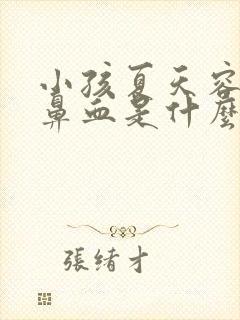 小孩夏天容
鼻血是什麼
張緒才